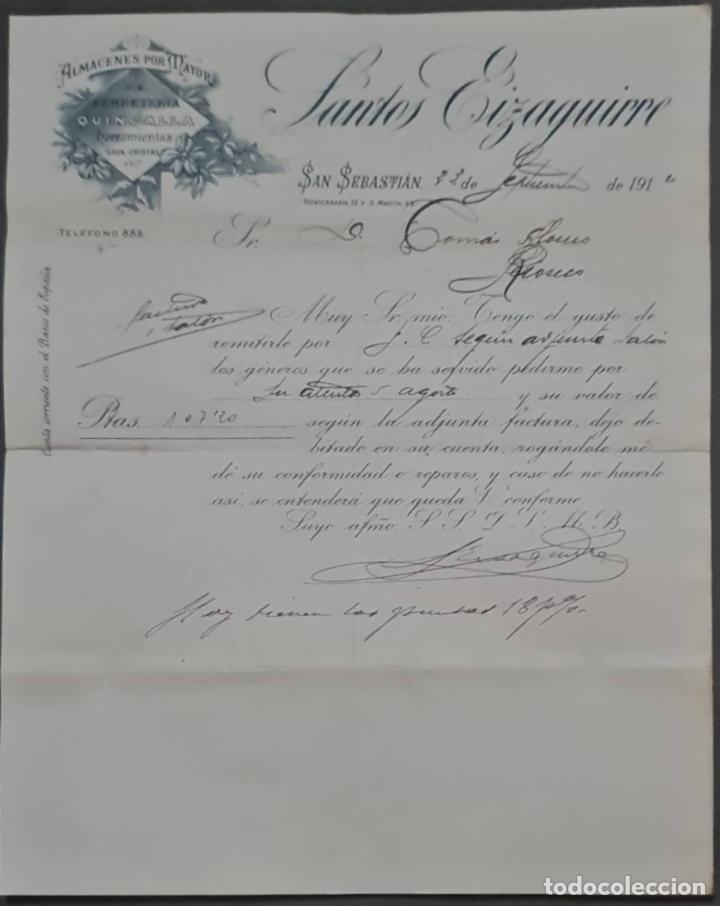 ALMACENES POR MAYOR
DE
FERRETERIA
QUINCALLA
herramientas
LOZA, CRISTAL
ETC.
TELÉFONO 888
Santos Eizaguirre
SAN SEBASTIÁN, 22 de Septiembre de 191
FUENTERRABÍA, 12 Y S. MARTÍN, 43
Sr. D. Tomás Alonso
Rioseco
Cuenta corriente con el Banco de España
factura
y talón
Muy Sr. mio: Tengo el gusto de
remitirle por J. C. según adjunto talón
los géneros que se ha servido pedirme por
su atenta 5 agosto y su valor de
Ptas. 107'20
según la adjunta factura, dejo de-
bitado en su cuenta, rogándole me
dé su conformidad o reparos, y caso de no hacerlo
así, se entenderá que queda V. conforme.
Suyo afmo. S. S. Q. B. S. M.
SEizaguirre
Hoy tienen las puntas 18 %
todocoleccion.net